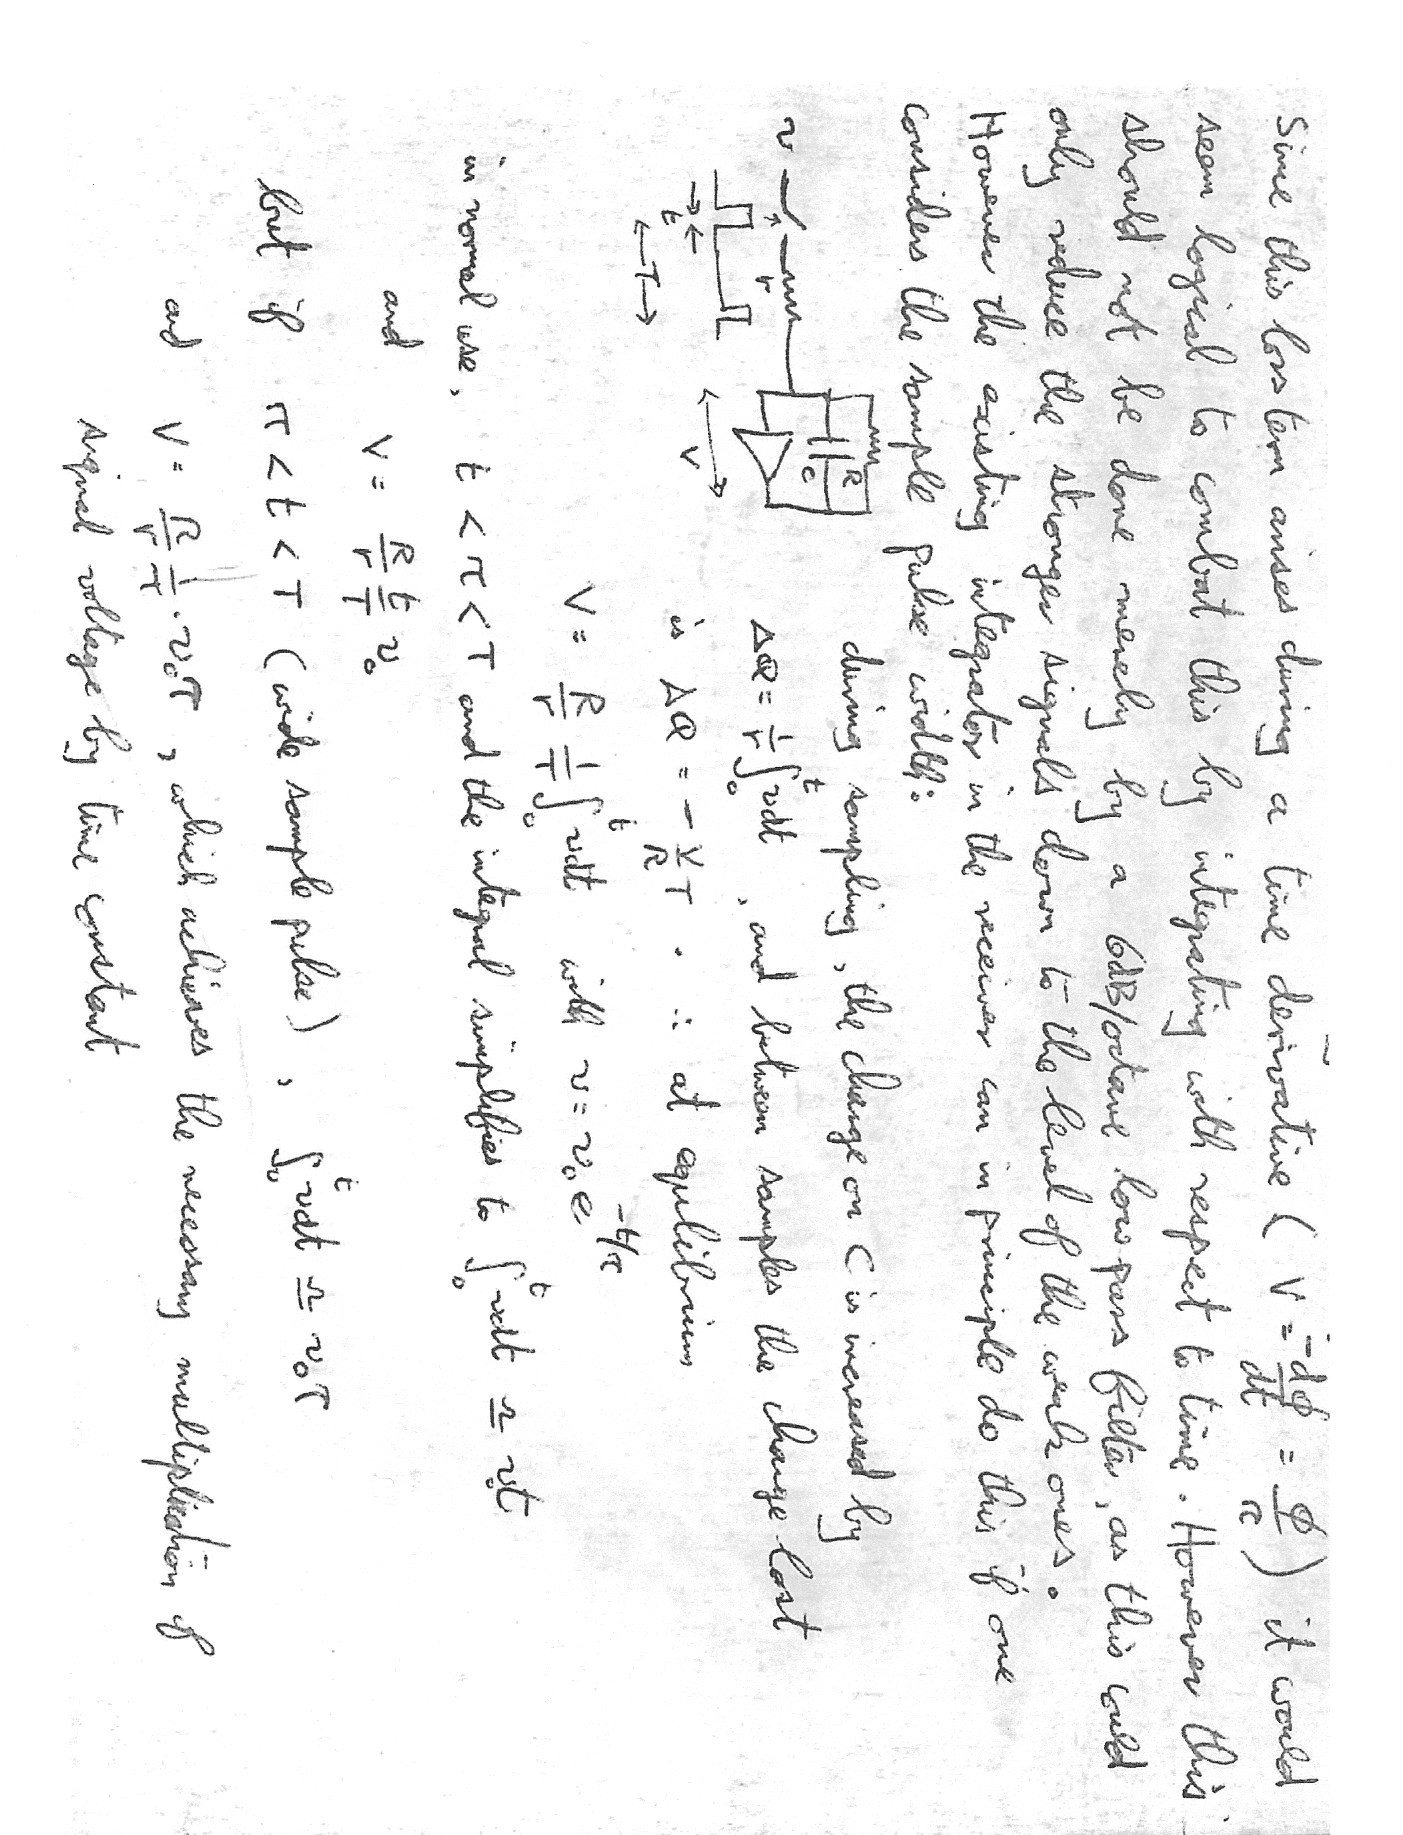 Since this loss term arises during a time derivative ( V = -dΦ/dt = Φ/τ ) it would
seem logical to combat this by integrating with respect to time. However this
should not be done merely by a 6dB/octave low pass filter, as this would
only reduce the stronger signals down to the level of the weak ones.
However the existing integrator in the receiver can in principle do this if one
considers the sample pulse width:
v r R C
t V
T
during sampling, the charge on C is increased by
ΔQ = 1/r ∫₀ᵗ vdt , and between samples the charge lost
is ΔQ = - V/R T . ∴ at equilibrium
V = R/r 1/T ∫₀ᵗ vdt with v = v₀ e^(-t/τ)
in normal use, t < τ < T and the integral simplifies to ∫₀ᵗ vdt ≃ v₀t
and V = R/r t/T v₀
but if τ < t < T (wide sample pulse) , ∫₀ᵗ vdt ≃ v₀τ
and V = R/r 1/T . v₀τ , which achieves the necessary multiplication of
signal voltage by time constant